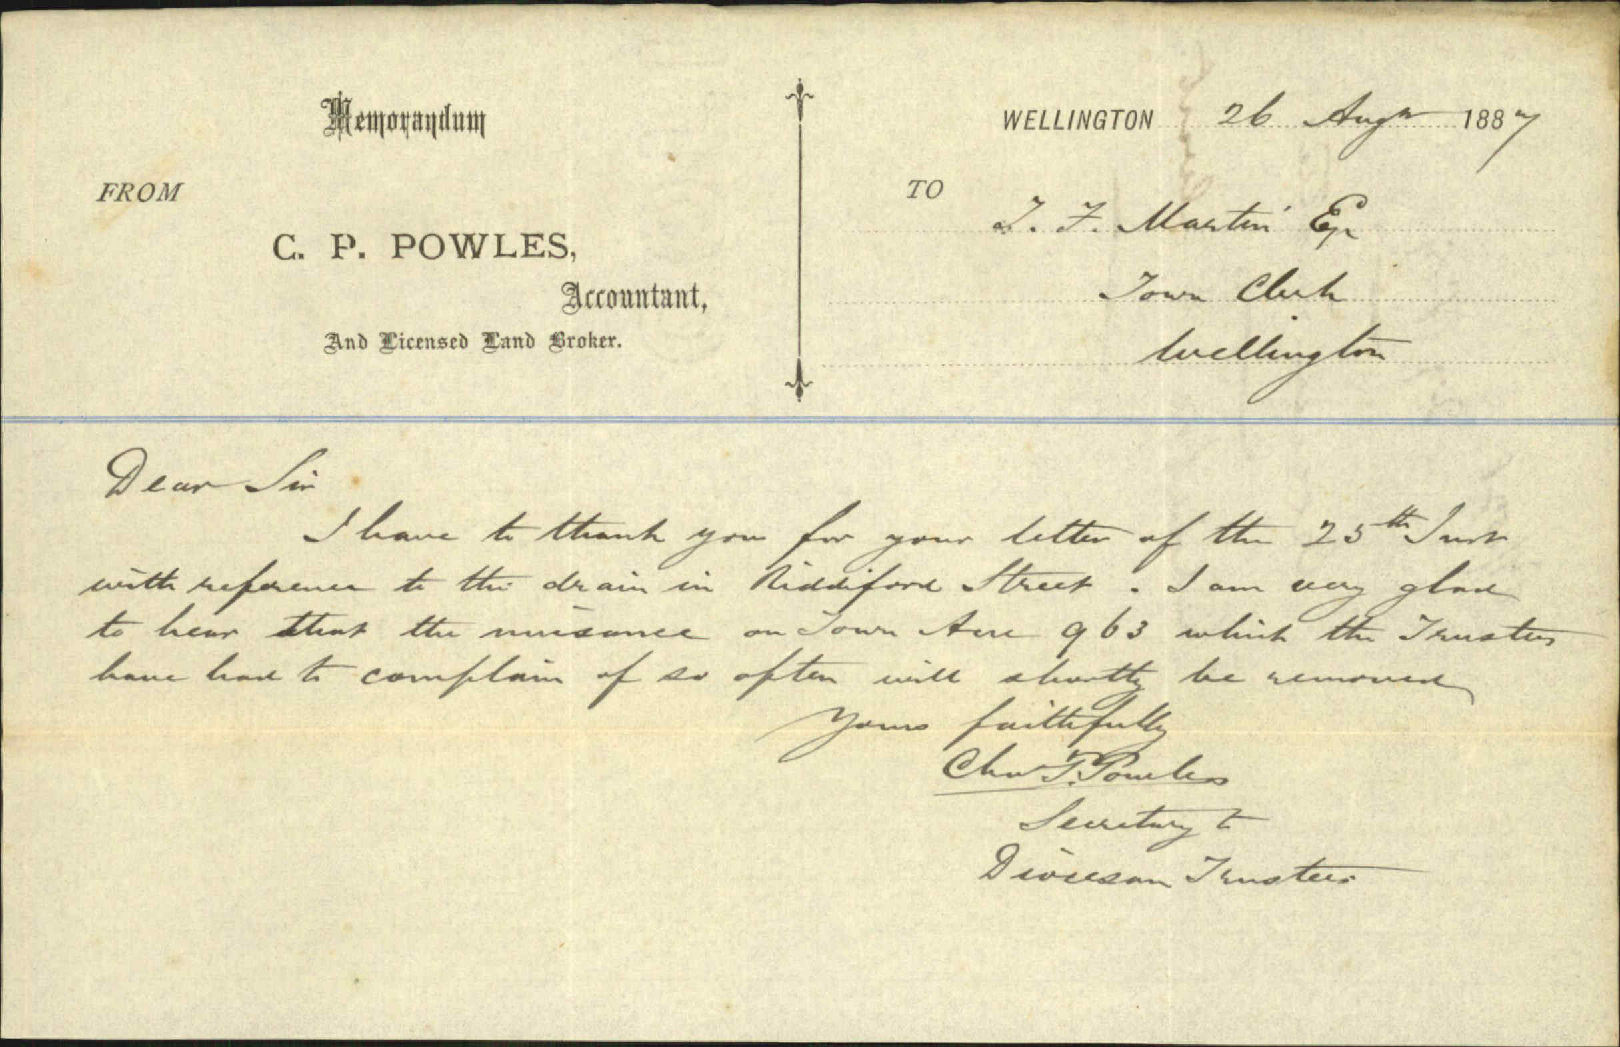 Memorandum
FROM
C. P. POWLES,
Accountant,
And Licensed Land Broker.
WELLINGTON 26 Augst 1887
TO
T. F. Martin Esq
Town Clerk
Wellington
Dear Sir
I have to thank you for your letter of the 25th Inst
with reference to the drain in Riddiford Street. I am very glad
to hear that the nuisance on Town Acre 963 which the Trustees
have had to complain of so often will shortly be removed
Yours faithfully
Chas P. Powles
Secretary to
Diocesan Trustees